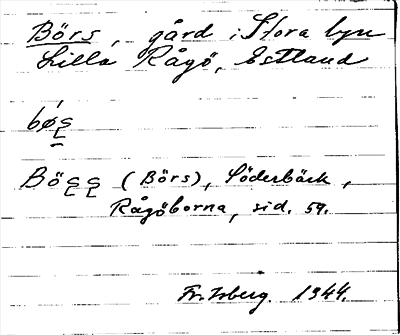 Börs, gård i Stora byn
Lilla Rågö, Estland
Bö (Börs), Söderbäck,
Rågöborna, sid. 59.
Fr. Isberg. 1944.